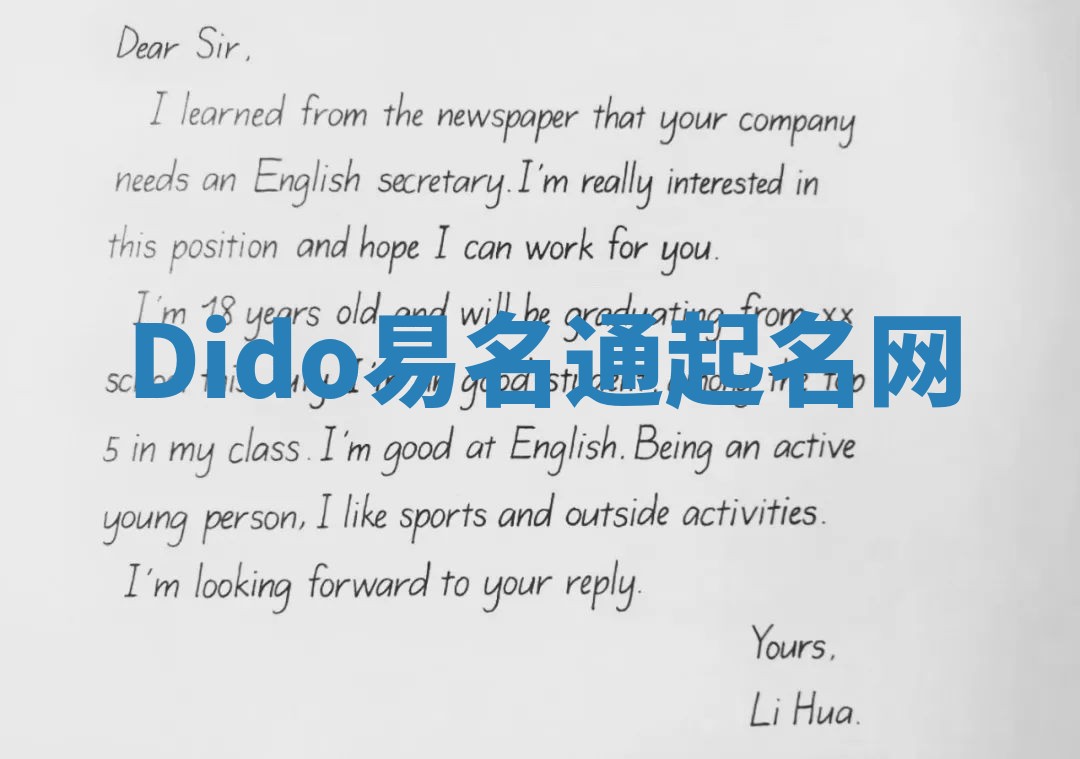 Dear Sir,
I learned from the newspaper that your company
needs an English secretary. I'm really interested in
this position and hope I can work for you.
I'm 18 years old and will be graduating from xx
Dido易名通起名网
school this July. I'm a good student among the top
5 in my class. I'm good at English. Being an active
young person, I like sports and outside activities.
I'm looking forward to your reply.
Yours,
Li Hua.